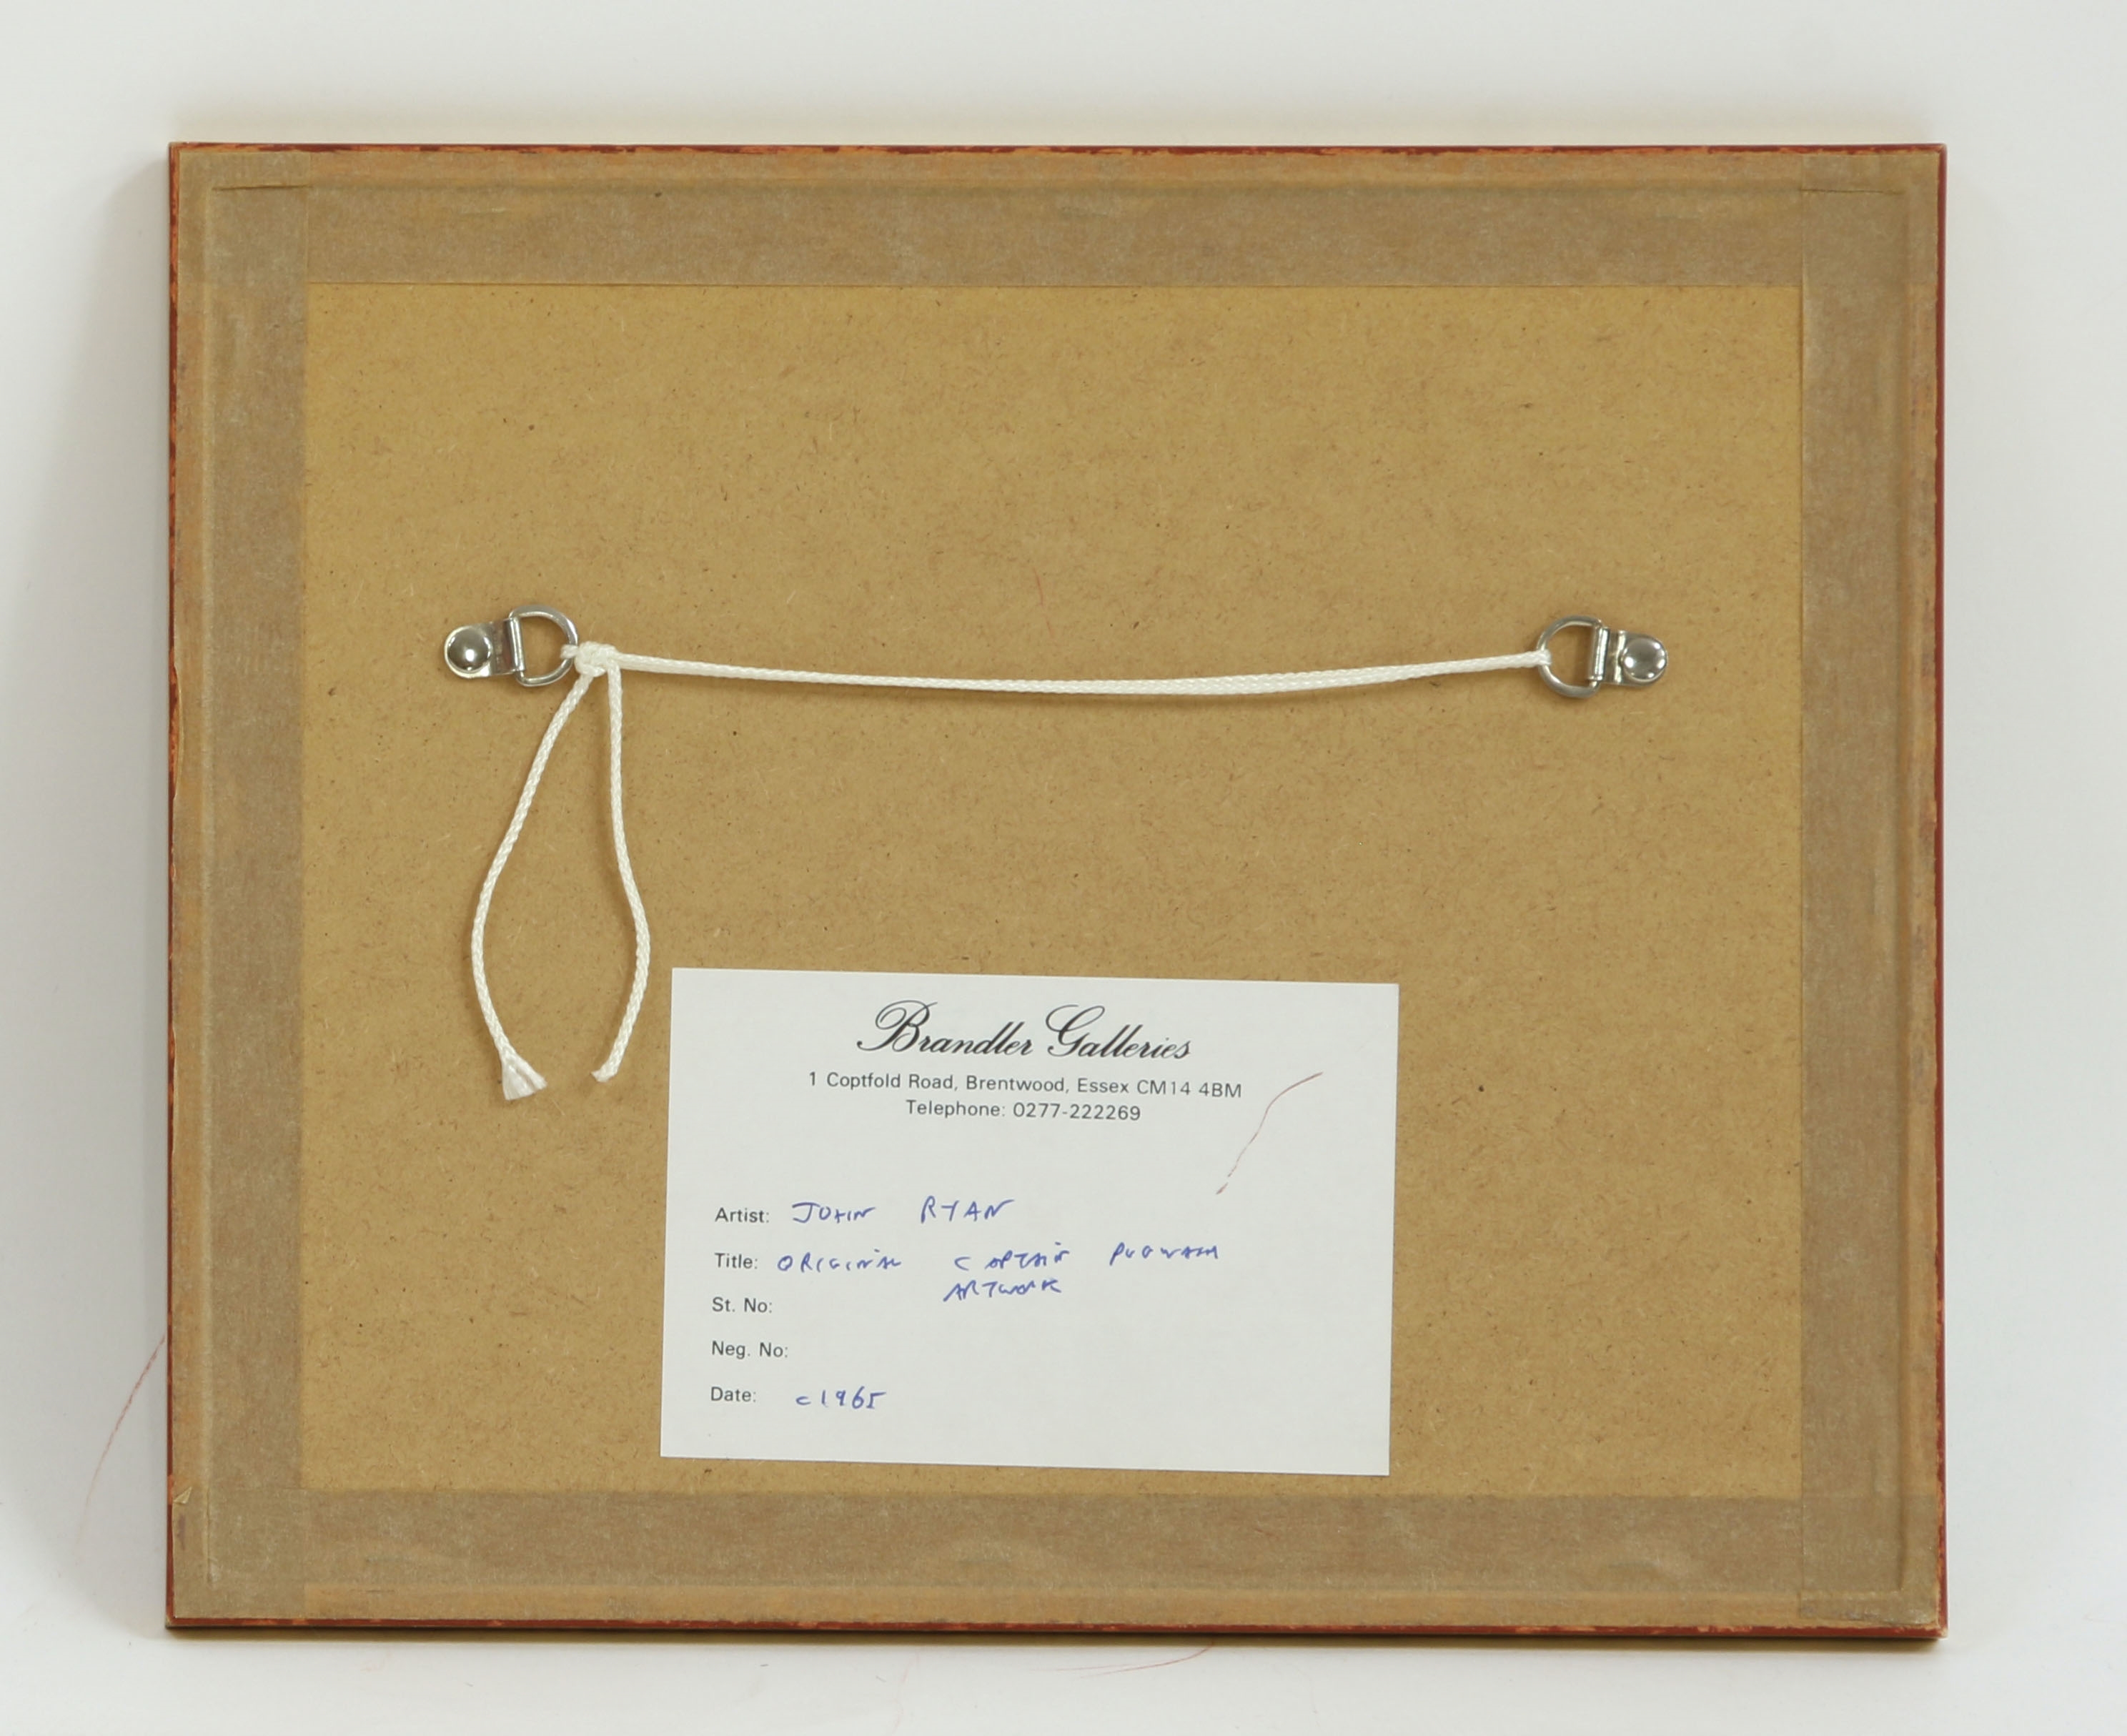 Brandler Galleries
1 Coptfold Road, Brentwood, Essex CM14 4BM
Telephone: 0277-222269
Artist: JOHN RYAN
Title: ORIGINAL CAPTAIN PUGWASH
ARTWORK
St. No:
Neg. No:
Date: c1965